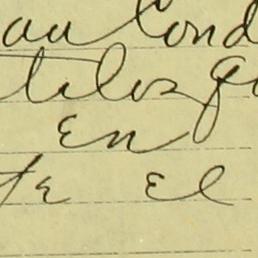 au Cond
tilos q
En
te El